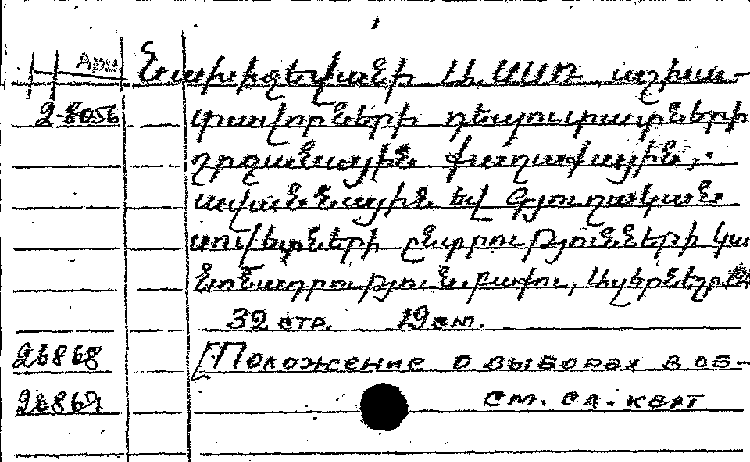 Арм
Նախիջևանի ԱՍՍՌ աշխա-
2-8056 տավորների դեպուտատների
շրջանային, քաղաքային,
ավանային եվ գյուղական
սովետների ընտրությունների կա
նոնադրություն, Բաքու, Ազերնեշր
32 стр. 19 см.
26868 [Положение о выборах в об-
26869 см. сл. карт